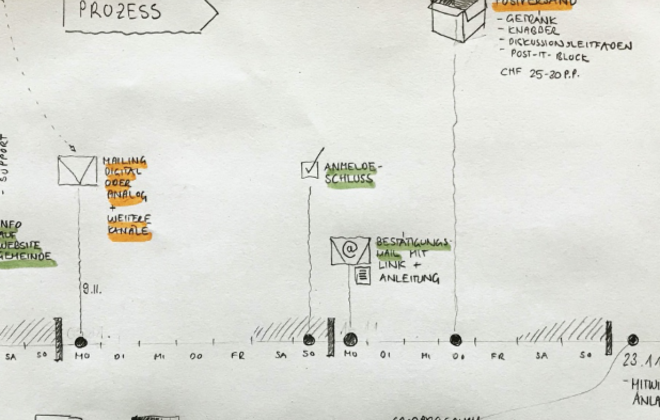 PROZESS
POSTVERSAND
- GETRÄNK
- KNABBER
- DISKUSSIONSLEITFADEN
- POST-IT-BLOCK
CHF 25-30 P.P.
- SUPPORT
MAILING
DIGITAL
ODER
ANALOG
+
WEITERE
KANÄLE
ANMELDE-
SCHLUSS
INFO
AUF
WEBSITE
GEMEINDE
@
BESTÄTIGUNGS-
MAIL MIT
LINK +
ANLEITUNG
9.11.
SA SO MO DI MI DO FR SA SO MO DI MI DO FR SA SO
23.11